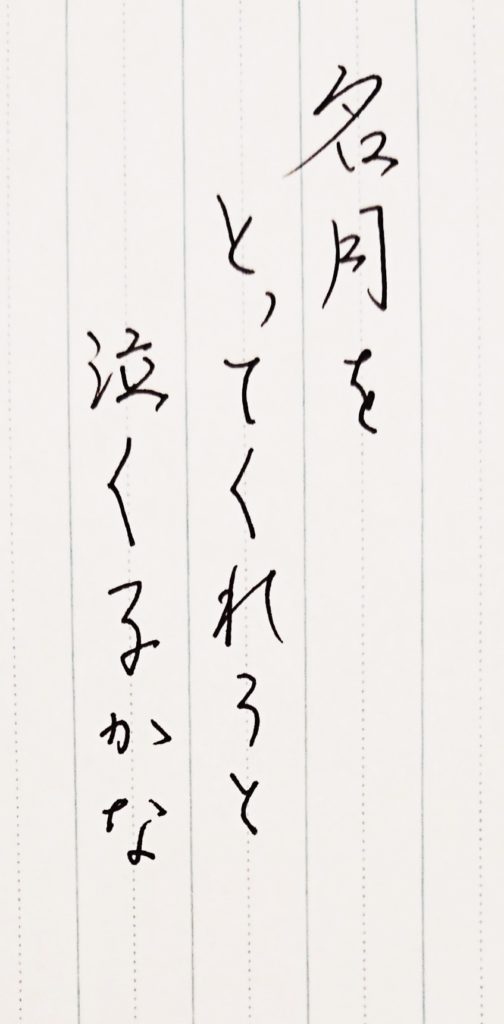 名月を
とってくれろと
泣く子かな